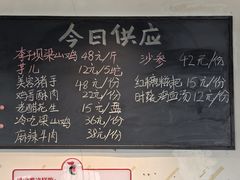 今日供应
李子坝梁山鸡 48元/斤
芋儿 12元/5吧
美容猪手 48元/份
鸡杂酥肉 22元/份
老醋花生 15元/盘
冷吃梁山鸡 36元/份
麻辣牛肉 38元/份
沙参 42元/份
红糖糍粑 15元/份
时蔬鸡血汤 12元/份